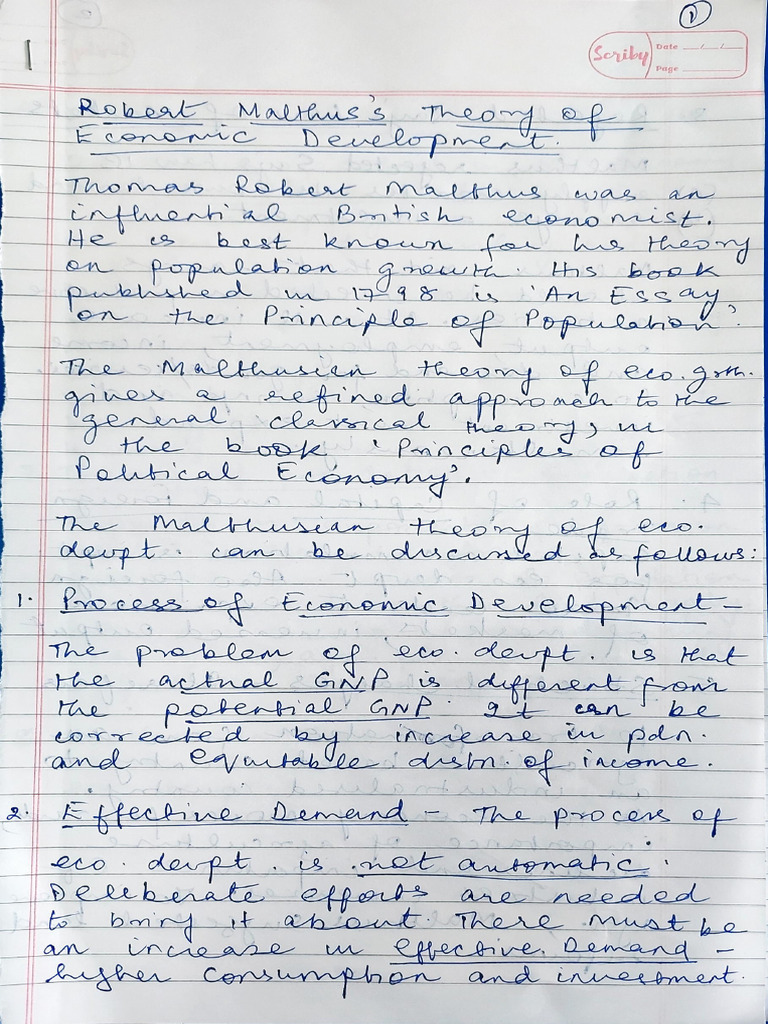 1
Scriby
Date
Page
Robert Malthus's Theory of
Economic Development.
Thomas Robert Malthus was an
influential British economist.
He is best known for his theory
on population growth. His book
published in 1798 is 'An Essay
on the Principle of Population'.
The Malthusian theory of eco. grth.
gives a refined approach to the
general classical theory, in
the book 'Principles of
Political Economy'.
The Malthusian theory of eco.
devpt. can be discussed as follows:
1. Process of Economic Development –
The problem of eco. devpt. is that
the actual GNP is different from
the potential GNP. It can be
corrected by increase in pdn.
and equitable distn. of income.
2. Effective Demand – The process of
eco. devpt. is not automatic.
Deliberate efforts are needed
to bring it about. There must be
an increase in effective Demand –
higher consumption and investment.